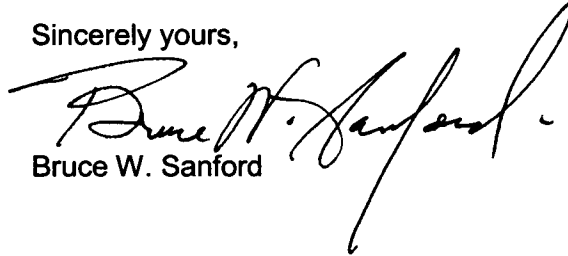 Sincerely yours,
Bruce W. Sanford
Bruce W. Sanford